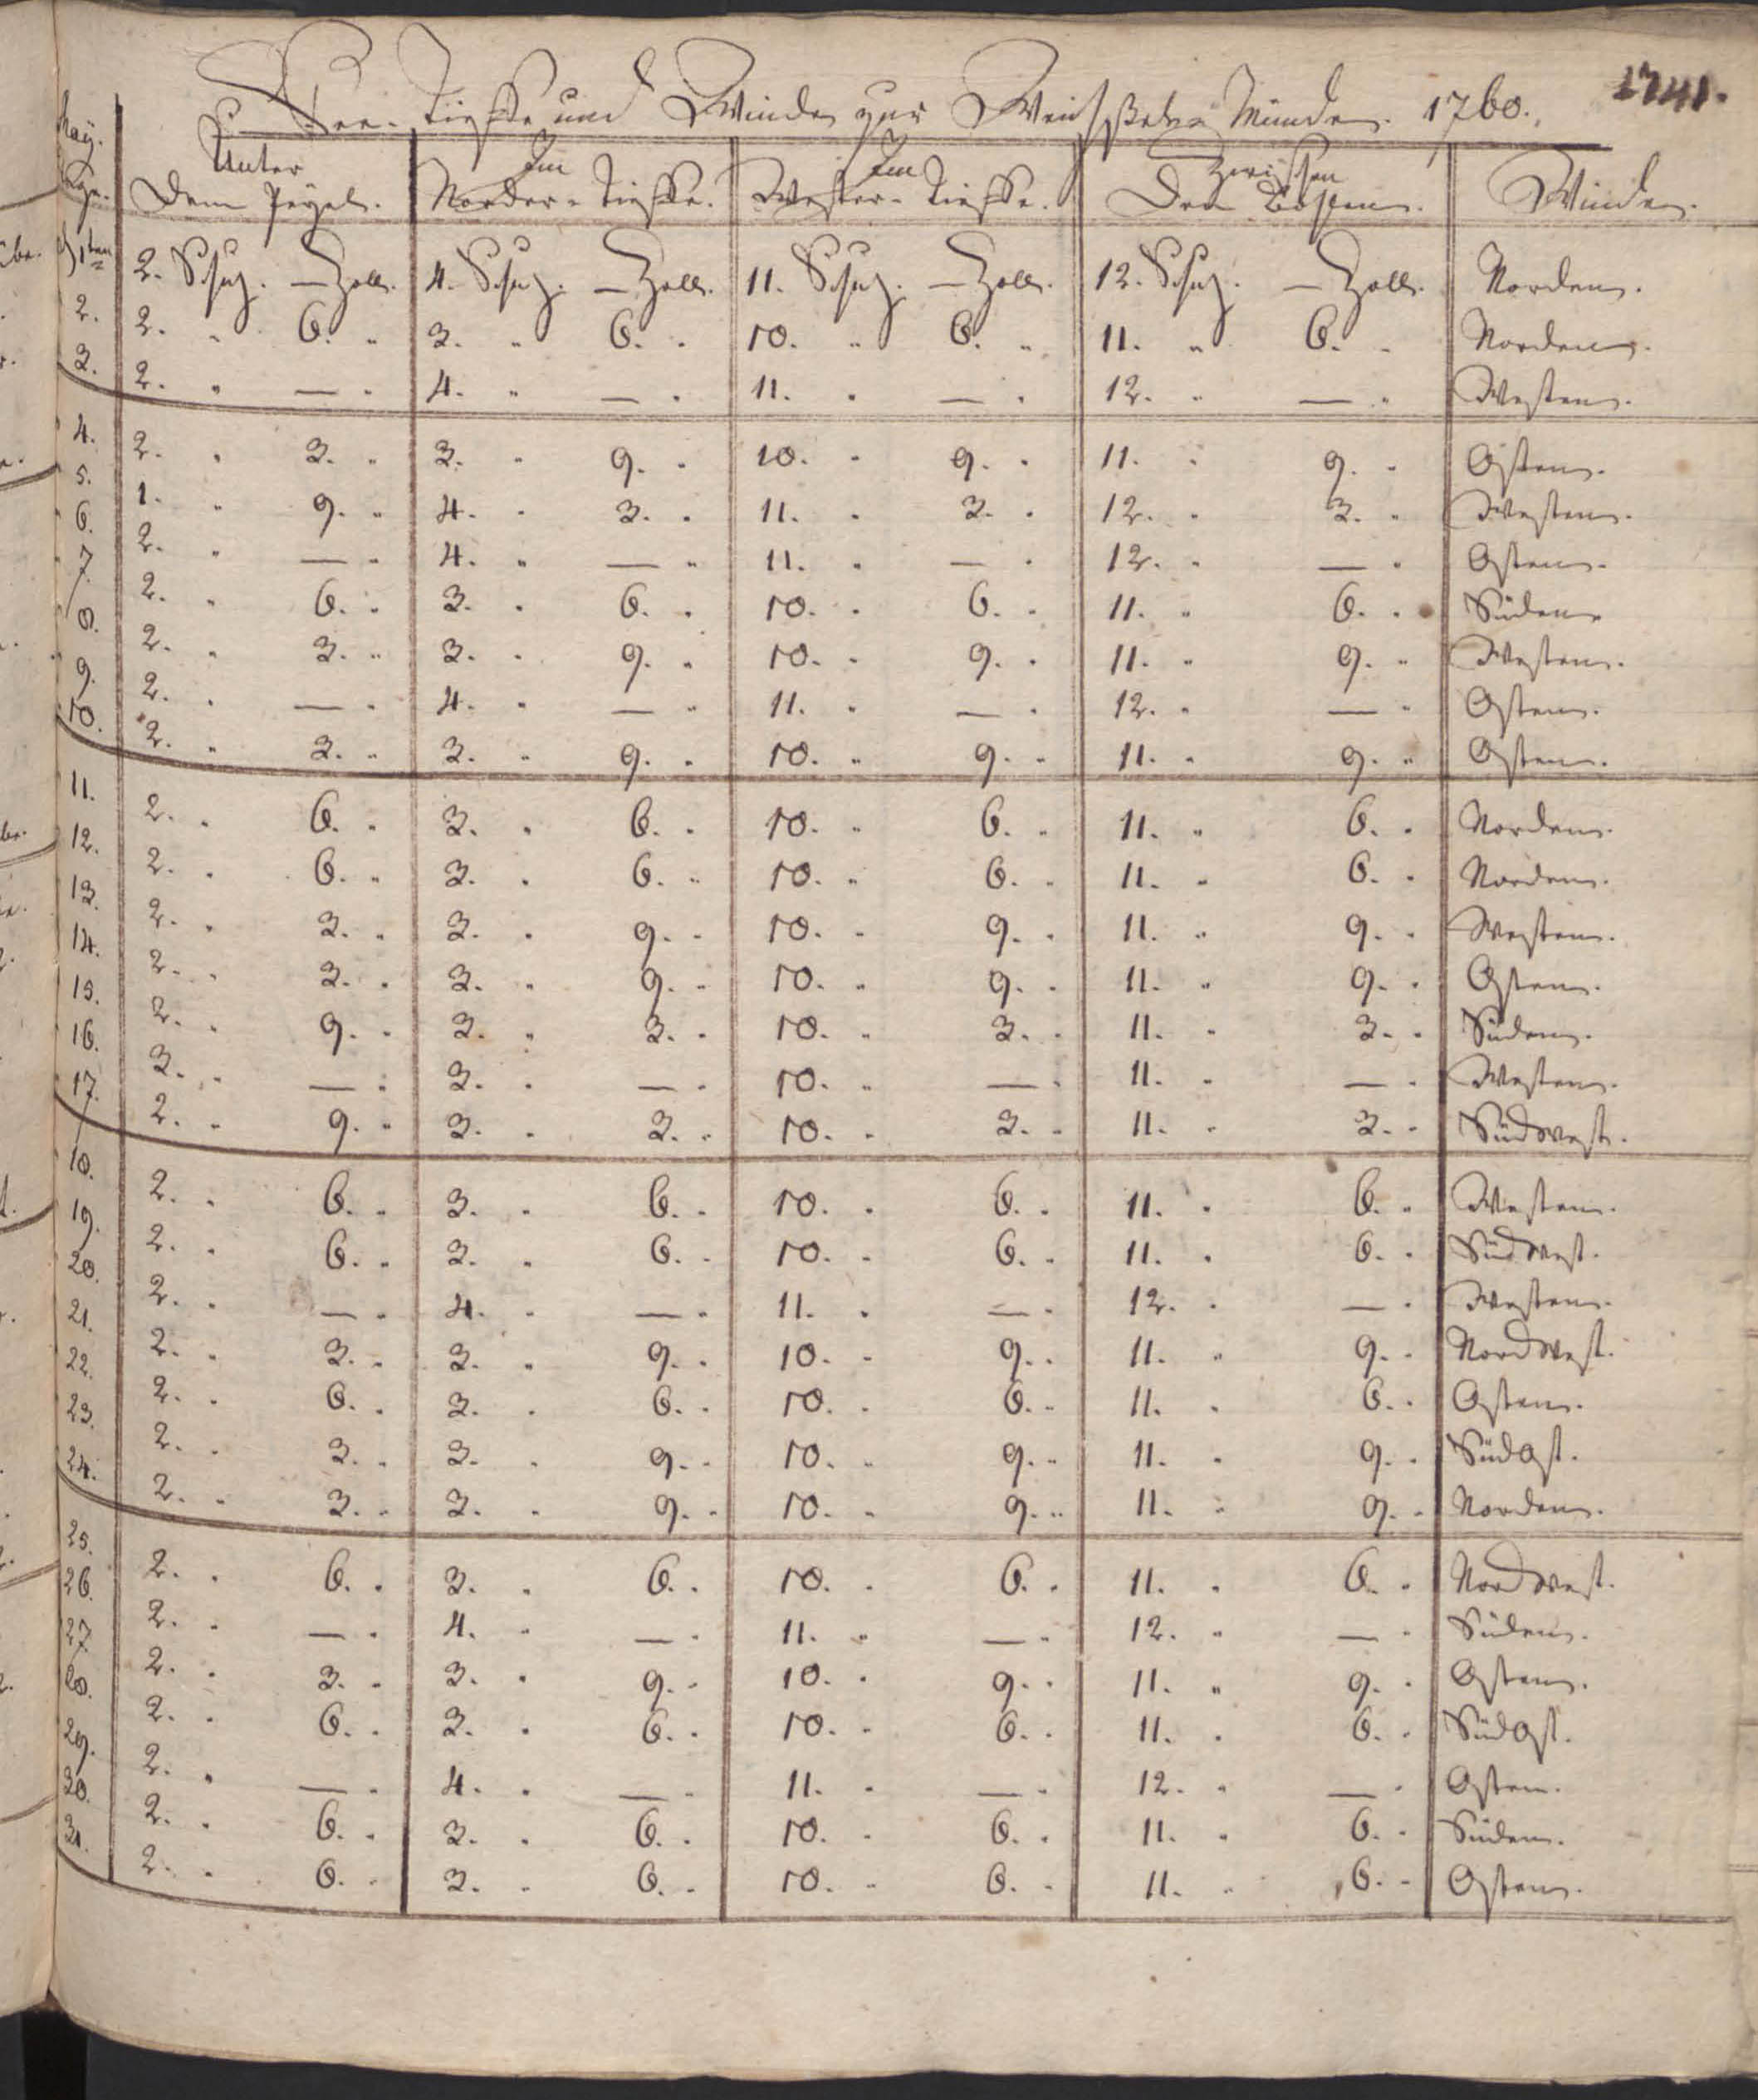 1741.
See-Tieffe und Winde zur Weichsel-Münde. 1760.
May. Unter dem Pegel. Im Norder-Tieffe. Im Wester-Tieffe. Zwischen den Winde.
1ten 2. Schuh. — Zoll. 4. Schuh. — Zoll. 11. Schuh. — Zoll. 12. Schuh. — Zoll. Norden.
2. 2. " 6. " 3. " 6. " 10. " 6. " 11. " 6. " Norden.
3. 2. " — " 4. " — " 11. " — " 12. " — " Westen.
4. 2. " 3. " 3. " 9. " 10. " 9. " 11. " 9. " Osten.
5. 1. " 9. " 4. " 3. " 11. " 3. " 12. " 3. " Westen.
6. 2. " — " 4. " — " 11. " — " 12. " — " Osten.
7. 2. " 6. " 3. " 6. " 10. " 6. " 11. " 6. " Süden.
8. 2. " 3. " 3. " 9. " 10. " 9. " 11. " 9. " Westen.
9. 2. " — " 4. " — " 11. " — " 12. " — " Osten.
10. 2. " 3. " 3. " 9. " 10. " 9. " 11. " 9. " Osten.
11. 2. " 6. " 3. " 6. " 10. " 6. " 11. " 6. " Norden.
12. 2. " 6. " 3. " 6. " 10. " 6. " 11. " 6. " Norden.
13. 2. " 3. " 3. " 9. " 10. " 9. " 11. " 9. " Westen.
14. 2. " 3. " 3. " 9. " 10. " 9. " 11. " 9. " Osten.
15. 2. " 9. " 3. " 3. " 10. " 3. " 11. " 3. " Süden.
16. 3. " — " 3. " — " 10. " — " 11. " — " Westen.
17. 2. " 9. " 3. " 3. " 10. " 3. " 11. " 3. " Südwest.
18. 2. " 6. " 3. " 6. " 10. " 6. " 11. " 6. " Westen.
19. 2. " 6. " 3. " 6. " 10. " 6. " 11. " 6. " Südwest.
20. 2. " — " 4. " — " 11. " — " 12. " — " Westen.
21. 2. " 3. " 3. " 9. " 10. " 9. " 11. " 9. " Nordwest.
22. 2. " 6. " 3. " 6. " 10. " 6. " 11. " 6. " Osten.
23. 2. " 3. " 3. " 9. " 10. " 9. " 11. " 9. " Südost.
24. 2. " 3. " 3. " 9. " 10. " 9. " 11. " 9. " Norden.
25. 2. " 6. " 3. " 6. " 10. " 6. " 11. " 6. " Nordwest.
26. 2. " — " 4. " — " 11. " — " 12. " — " Süden.
27. 2. " 3. " 3. " 9. " 10. " 9. " 11. " 9. " Osten.
28. 2. " 6. " 3. " 6. " 10. " 6. " 11. " 6. " Südost.
29. 2. " — " 4. " — " 11. " — " 12. " — " Osten.
30. 2. " 6. " 3. " 6. " 10. " 6. " 11. " 6. " Süden.
31. 2. " 6. " 3. " 6. " 10. " 6. " 11. " 6. " Osten.